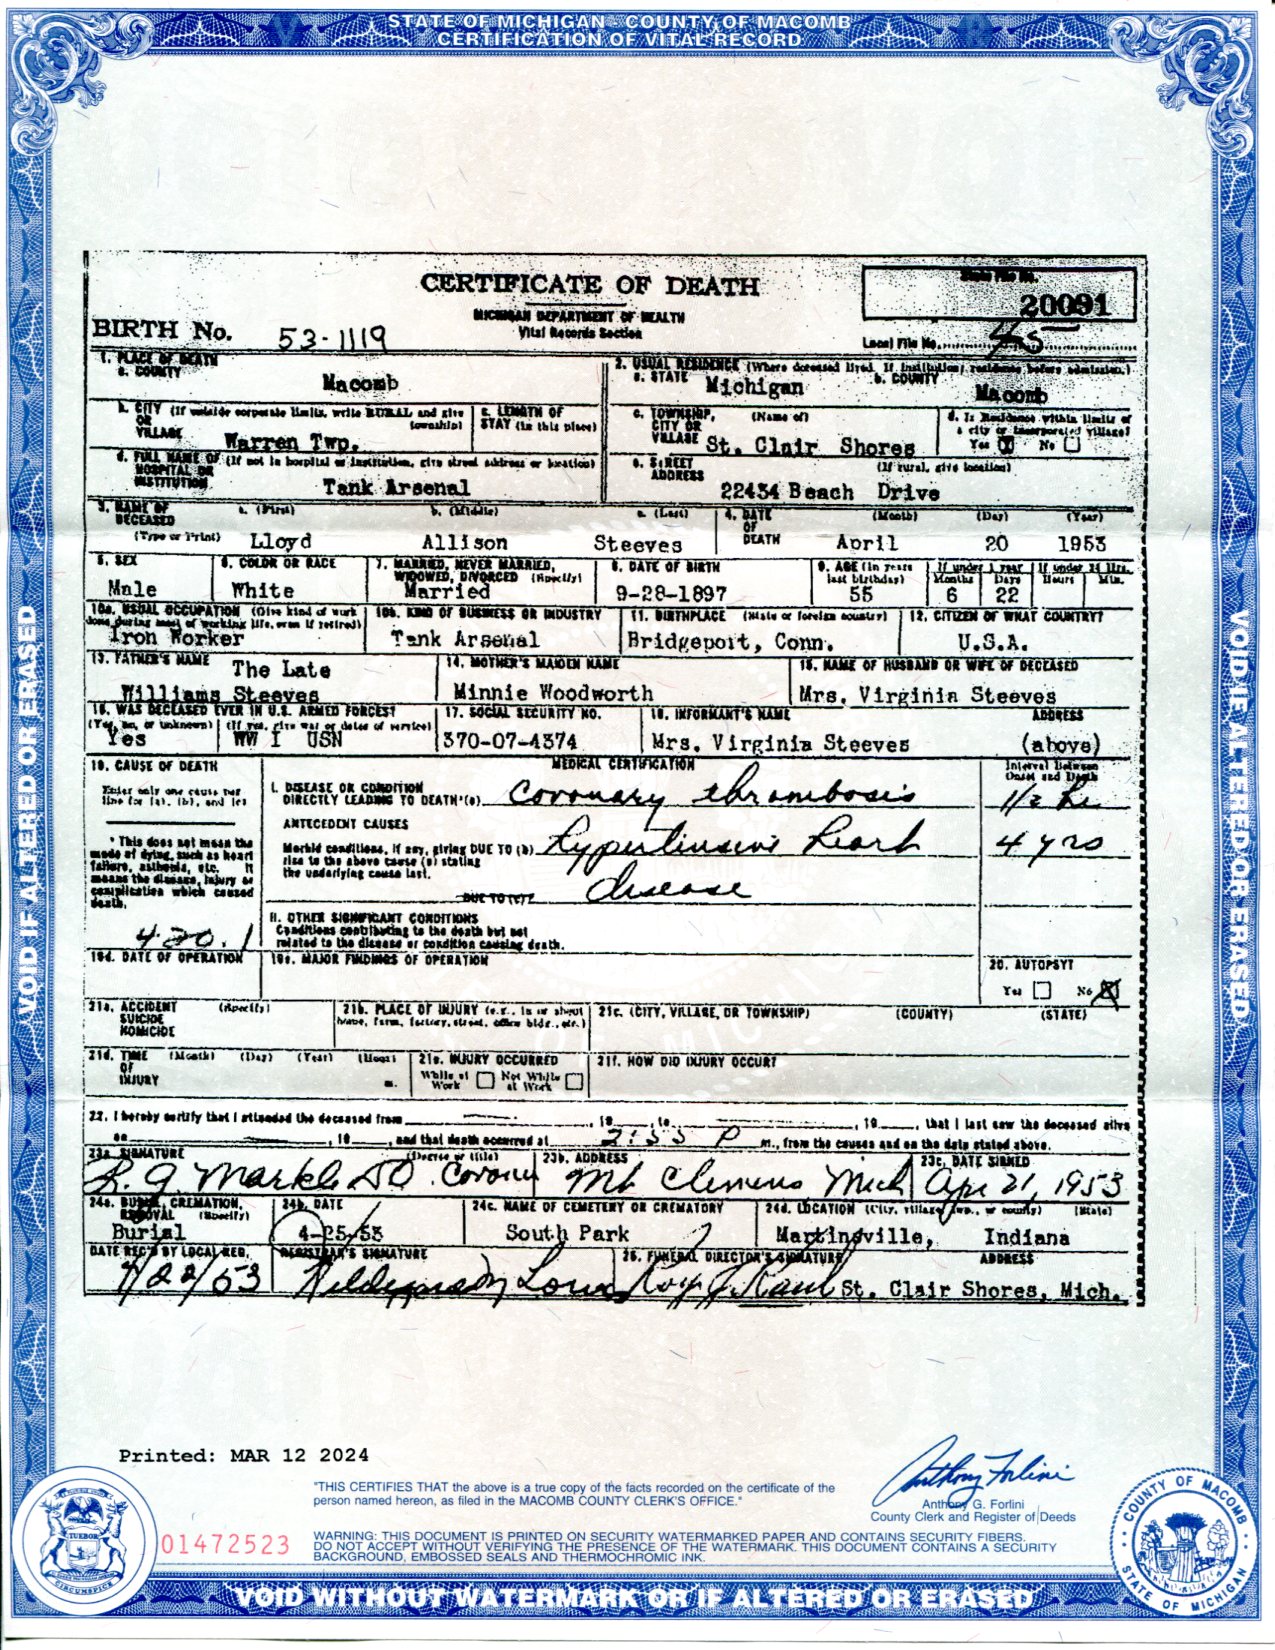 STATE OF MICHIGAN - COUNTY OF MACOMB
CERTIFICATION OF VITAL RECORD
CERTIFICATE OF DEATH
MICHIGAN DEPARTMENT OF HEALTH
Vital Records Section
State File No.
20091
BIRTH No. 53-1119
Local File No. 45
1. PLACE OF DEATH
a. COUNTY
Macomb
2. USUAL RESIDENCE (Where deceased lived. If institution; residence before admission.)
a. STATE Michigan b. COUNTY Macomb
b. CITY (If outside corporate limits, write RURAL and give township)
OR
VILLAGE Warren Twp.
c. LENGTH OF
STAY (in this place)
c. TOWNSHIP, (Name of)
CITY OR
VILLAGE St. Clair Shores
d. Is Residence within limits of
a city or incorporated village?
Yes X No
d. FULL NAME OF (If not in hospital or institution, give street address or location)
HOSPITAL OR
INSTITUTION Tank Arsenal
e. STREET (If rural, give location)
ADDRESS
22434 Beach Drive
3. NAME OF
DECEASED a. (First) b. (Middle) c. (Last)
(Type or Print) Lloyd Allison Steeves
4. DATE (Month) (Day) (Year)
OF
DEATH April 20 1953
5. SEX
Male
6. COLOR OR RACE
White
7. MARRIED, NEVER MARRIED,
WIDOWED, DIVORCED (Specify)
Married
8. DATE OF BIRTH
9-28-1897
9. AGE (In years
last birthday)
55
If under 1 year
Months Days
6 22
If under 24 Hrs.
Hours Min.
10a. USUAL OCCUPATION (Give kind of work
done during most of working life, even if retired)
Iron Worker
10b. KIND OF BUSINESS OR INDUSTRY
Tank Arsenal
11. BIRTHPLACE (State or foreign country)
Bridgeport, Conn.
12. CITIZEN OF WHAT COUNTRY?
U.S.A.
13. FATHER'S NAME The Late
Williams Steeves
14. MOTHER'S MAIDEN NAME
Minnie Woodworth
15. NAME OF HUSBAND OR WIFE OF DECEASED
Mrs. Virginia Steeves
16. WAS DECEASED EVER IN U.S. ARMED FORCES?
(Yes, no, or unknown) (If yes, give war or dates of service)
Yes WW I USN
17. SOCIAL SECURITY NO.
370-07-4374
18. INFORMANT'S NAME ADDRESS
Mrs. Virginia Steeves (above)
19. CAUSE OF DEATH
Enter only one cause per
line for (a), (b), and (c)
* This does not mean the
mode of dying, such as heart
failure, asthenia, etc. It
means the disease, injury or
complication which caused
death.
420.1
MEDICAL CERTIFICATION
Interval Between
Onset and Death
I. DISEASE OR CONDITION
DIRECTLY LEADING TO DEATH*(a) Coronary thrombosis 1/2 hr
ANTECEDENT CAUSES
Morbid conditions, if any, giving DUE TO (b) Hypertensive heart 4 yrs
rise to the above cause (a) stating
the underlying cause last.
disease
DUE TO (c)
II. OTHER SIGNIFICANT CONDITIONS
Conditions contributing to the death but not
related to the disease or condition causing death.
19d. DATE OF OPERATION
19e. MAJOR FINDINGS OF OPERATION
20. AUTOPSY?
Yes No X
21a. ACCIDENT (Specify)
SUICIDE
HOMICIDE
21b. PLACE OF INJURY (e.g., in or about
home, farm, factory, street, office bldg., etc.)
21c. (CITY, VILLAGE, OR TOWNSHIP) (COUNTY) (STATE)
21d. TIME (Month) (Day) (Year) (Hour)
OF
INJURY m.
21e. INJURY OCCURRED
While at Work Not While at Work
21f. HOW DID INJURY OCCUR?
22. I hereby certify that I attended the deceased from , 19 , to , 19 , that I last saw the deceased alive
on , 19 , and that death occurred at 2:55 P m., from the causes and on the date stated above.
23a. SIGNATURE (Degree or title)
R. G. Markle DO. Coroner
23b. ADDRESS
Mt Clemens Mich
23c. DATE SIGNED
Apr 21, 1953
24a. BURIAL, CREMATION,
REMOVAL (Specify)
Burial
24b. DATE
4-25/53
24c. NAME OF CEMETERY OR CREMATORY
South Park
24d. LOCATION (City, village, twp., or county) (State)
Martinsville, Indiana
DATE REC'D BY LOCAL REG.
4/22/53
REGISTRAR'S SIGNATURE
25. FUNERAL DIRECTOR'S SIGNATURE ADDRESS
St. Clair Shores, Mich.
VOID IF ALTERED OR ERASED
VOID IF ALTERED OR ERASED
Printed: MAR 12 2024
"THIS CERTIFIES THAT the above is a true copy of the facts recorded on the certificate of the
person named hereon, as filed in the MACOMB COUNTY CLERK'S OFFICE."
Anthony Forlini
Anthony G. Forlini
County Clerk and Register of Deeds
01472523
WARNING: THIS DOCUMENT IS PRINTED ON SECURITY WATERMARKED PAPER AND CONTAINS SECURITY FIBERS.
DO NOT ACCEPT WITHOUT VERIFYING THE PRESENCE OF THE WATERMARK. THIS DOCUMENT CONTAINS A SECURITY
BACKGROUND, EMBOSSED SEALS AND THERMOCHROMIC INK.
TUEBOR
CIRCUMSPICE
COUNTY OF MACOMB
STATE OF MICHIGAN
VOID WITHOUT WATERMARK OR IF ALTERED OR ERASED